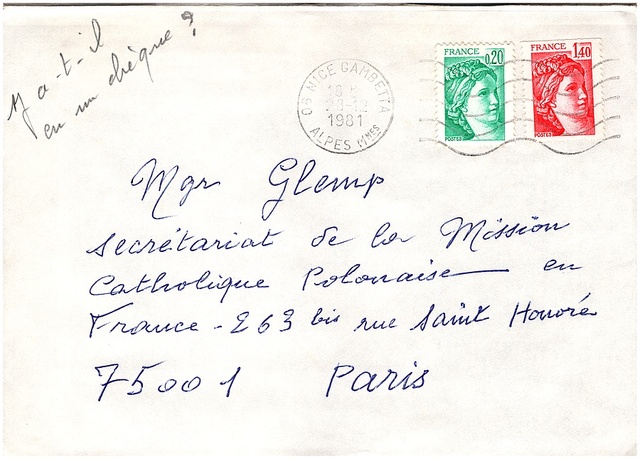 y a-t-il
en un chèque?
06 NICE GAMBETTA
1981
ALPES Mmes
FRANCE 0,20
POSTES
FRANCE 1,40
POSTES
Mgr Glemp
Secrétariat de la Mission
Catholique Polonaise en
France - 263 bis rue Saint Honoré
75001 Paris